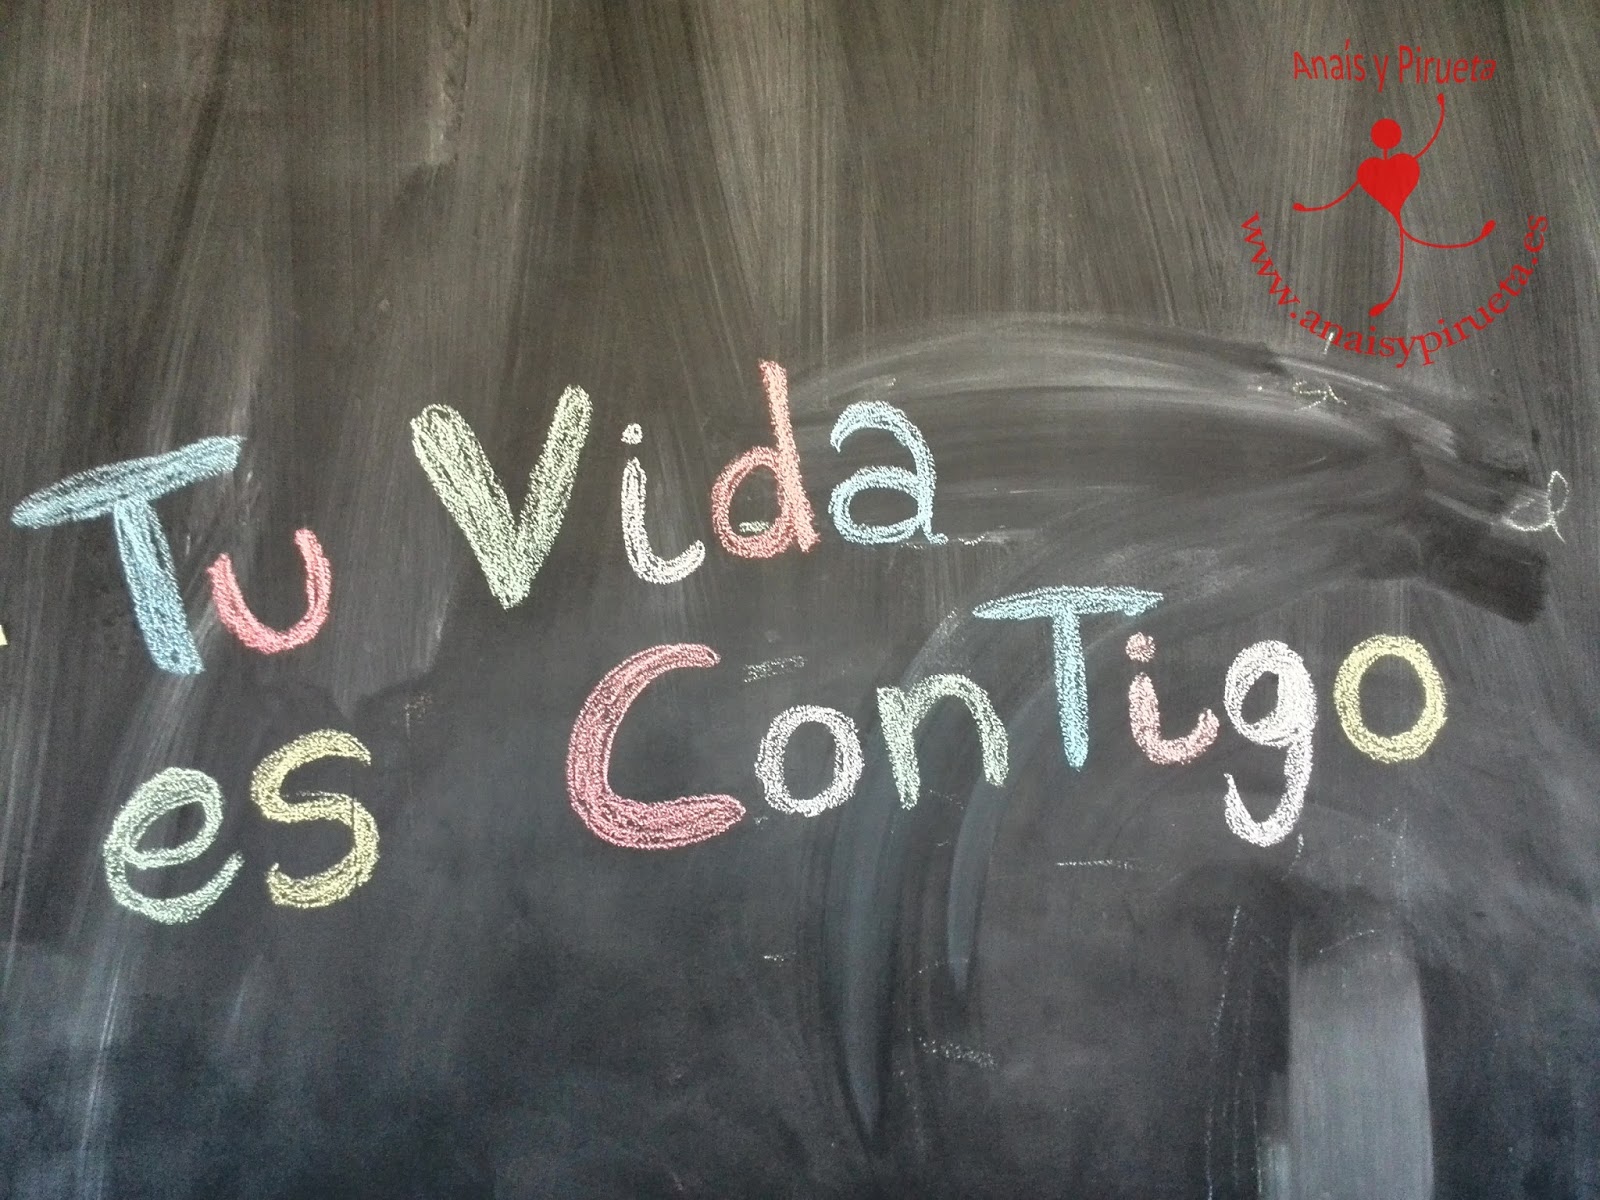 Anaís y Pirueta
www.anaisypirueta.es
Tu Vida
es ConTigo